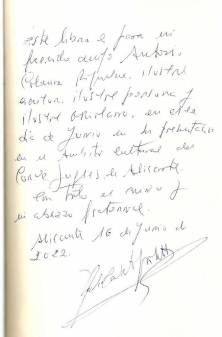 Este libro es para mi
querido amigo Antonio
ilustre
escritor, ilustre persona y
ilustre en este
día de Junio en la presentación
en el Ámbito Cultural del
Corte Inglés, en Alicante.
Con todo el cariño y
mi abrazo fraternal.
Alicante 16 de Junio de
2022.